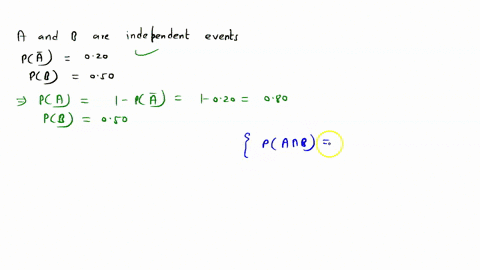 A and B are independent events
P(Ā) = 0.20
P(B) = 0.50
⇒ P(A) = 1-P(Ā) = 1-0.20 = 0.80
P(B) = 0.50
{ P(A∩B) =